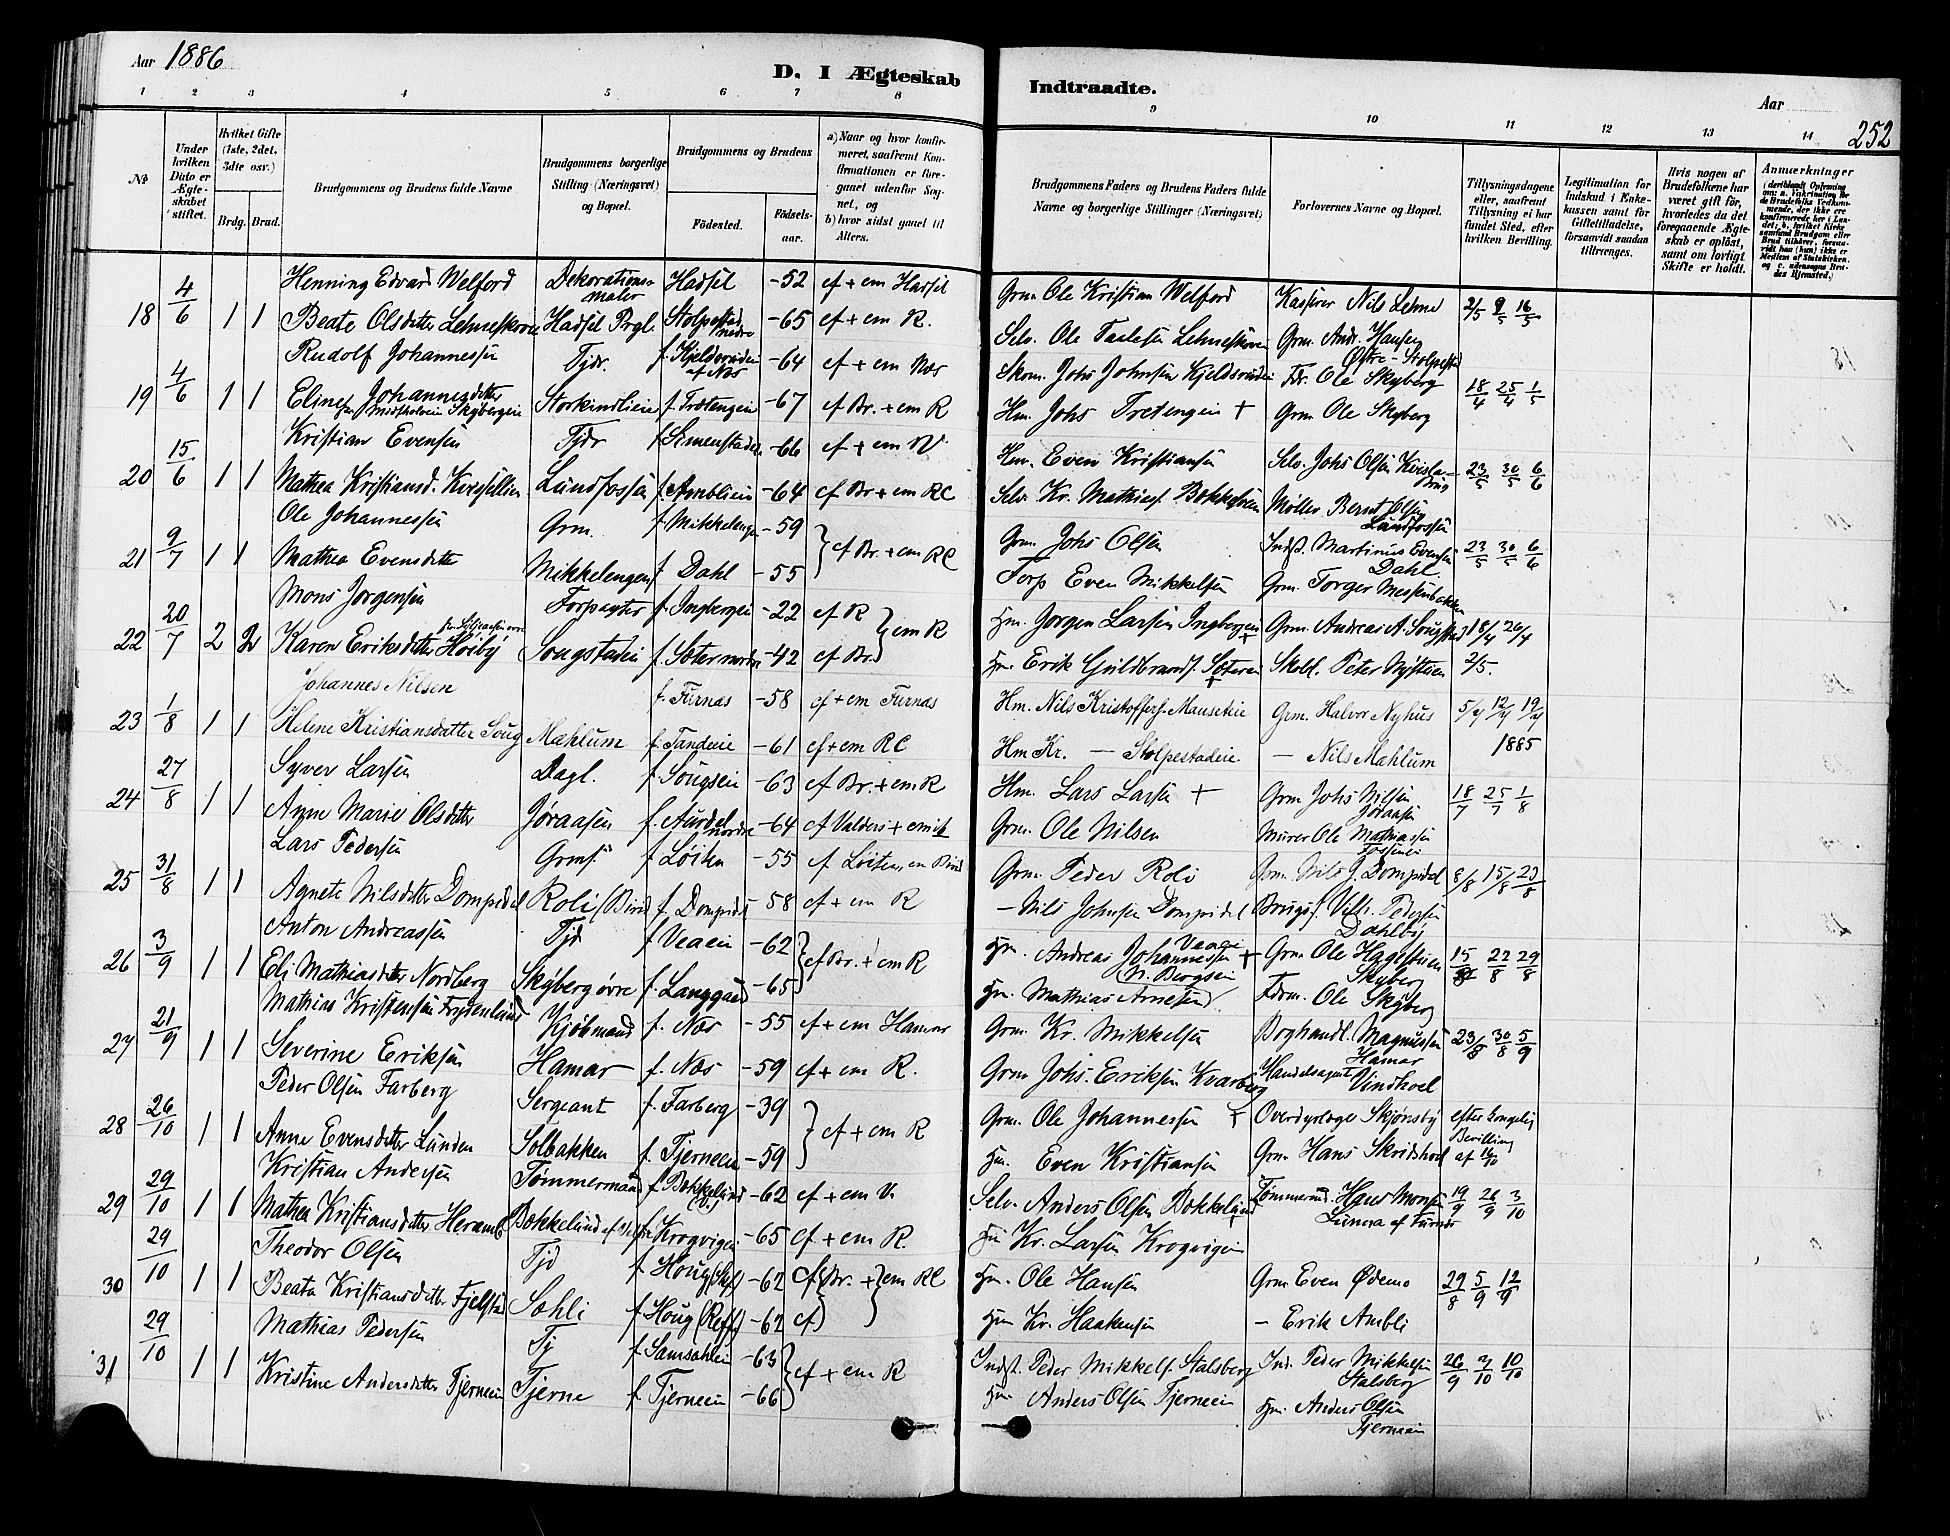 Aar 1886
D. I Ægteskab
Indtraadte.
Aar
252
1 2 3 4 5 6 7 8 9 10 11 12 13 14
No
Under hvilken Dato er Ægteskabet stiftet.
Hvilket Gifte (1ste, 2det, 3die osv.)
Brdg. Brud.
Brudgommens og Brudens fulde Navne
Brudgommens borgerlige Stilling (Næringsvei) og Bopæl.
Brudgommens og Brudens
Födested. Födselsaar.
a) Naar og hvor konfirmeret, saafremt Konfirmationen er foregaaet udenfor Sognet, og
b) hvor sidst gaaet til Alters.
Brudgommens Faders og Brudens Faders fulde Navne og borgerlige Stillinger (Næringsvei)
Forlovernes Navne og Bopæl.
Tillysningsdagene eller, saafremt Tillysning ei har fundet Sted, efter hvilken Bevilling.
Legitimation for Indskud i Enkekassen samt for Giftetilladelse, forsaavidt saadan tiltrænges.
Hvis nogen af Brudefolkene har været gift för, hvorledes da det foregaaende Ægteskab er oplöst, samt om lovligt Skifte er holdt.
Anmærkninger
18 4/6 1 1 Henning Edvard Welford Dekorationsmaler Hadsel -52 cf + em Hadsel Grm. Ole Kristian Welford Kasserer Nils Lehne 2/5 9/5 16/5
Beate Olsdatter Lehneskoven Hadsel Prgl. Stolpestad nedre -65 cf + em R. Selv. Ole Paulesen Lehneskoven Grm. Andr. Hansen Østre-Stolpestad
19 4/6 1 1 Rudolf Johannessen Tjdr. f. Kjeldsrudei af Næs -64 cf + em Næs Skom. Johs Johnsen Kjeldsrudei Fdr. Ole Skyberg 18/4 25/4 1/5
Eline Johannesdatter Skybergeie Storkindlien f. Trætengen -67 cf Br. + em R Hm. Johs Tretengen + Grm Ole Skyberg
20 15/6 1 1 Kristian Evensen Tjdr f. Simenstaden -66 cf + em V Hm. Even Kristiansen Selv. Johs Olsen 23/5 30/5 6/6
Mathea Kristiansd. Kvessellien Lundfossen f. Amblien -64 cf Br + em RC Selv. Kr. Mathiess Bakkehven Møller Bernt Olsen Lundfossen
21 9/7 1 1 Ole Johannessen Grm. f. Mikkelengen -59 } cf Br. + em RC Grm. Johs Olsen Indst. Martinus Evensen Dahl 23/5 30/5 6/6
Mathea Evensdatter Mikkelengen f. Dahl -55 Forp Even Mikkelsen Grm. Torger Messenbakken
22 20/7 2 2 Mons Jørgensen Forpagter f. Ingbergei -22 cf R } em R Hm. Jørgen Larsen Ingbergen + Grm. Andreas A. Sougstad 18/4 26/4
Karen Eriksdatter Høiby Sougstaden f. Soter nordre -42 cf Br. Hm. Erik Guldbrands. Soteren + Skoll. Peter Nysteen 2/5.
23 1/8 1 1 Johannes Nilsen f. Furnæs -58 cf + em Furnæs Hm. Nils Kristoffers. Mauseteie Grm. Halvor Nyhus 5/4 12/4 19/4
Helene Kristiansdatter Soug Mæhlum f. Tandeeie -61 cf + em RC Hm Kr. — Stolpestadeie — Nils Mæhlum 1885
24 27/8 1 1 Syver Larsen Dagl. f. Sougseie -63 cf Br. + em R Hm. Lars Larsen + Grm Johs Nilsen Jøraasen 18/7 25/7 1/8
Anne Marie Olsdatter Jøraasen f. Aurdal nordre -64 cf Valders + em R Grm. Ole Nilsen Murer Ole Mathiassen Fosseneie
25 31/8 1 1 Lars Pedersen Grms. f. Løiten -55 cf Løiten, em Birid Grm. Peder Roli Grm. Nils J. Dompidel 8/8 15/8 23/8
Agnete Nilsdatter Dompidel Roli (Birid f. Dompidel -58 cf + em R — Nils Johnsen Dompidel Brugsf. Vilh. Pedersen Dahlby
26 3/9 1 1 Anton Andreassen Tjd f. Veaeie -62 } cf Br. + em R Hm. Andreas Johannessen Veaeie + Grm Ole Haglstuen Skyberg 15/8 22/8 29/8
Eli Mathiasdatter Nordberg Skyberg øvre f. Langgaard -65 Hm. Mathias Arnesen n. Bergseie Fdrm. Ole Skyberg
27 21/9 1 1 Mathias Kristensen Frydenlund Kjøbmand f. Næs -55 cf + em Hamar Grm. Kr. Mikkelsen Boghandl. Magnussen Hamar 23/8 30/8 5/9
Severine Eriksen Hamar f. Næs -59 cf + em R. Grm Johs. Eriksen Kvarberg Handelsagent Vindhoel
28 26/10 1 1 Peder Olsen Farberg Sergeant f. Farberg -39 } cf + em R Grm. Ole Johannessen + Overdyrlæge Skjønsby efter kongelig Bevilling af 16/10
Anne Evensdatter Lunden Solbakken f. Tjerneen -59 Hm. Even Kristiansen Grm. Hans Skridshol
29 29/10 1 1 Kristian Andersen Tømmermand f. Bækkelund -62 cf + em V. Selv. Anders Olsen Bækkelund Tømmerm. Hans Monsen Lunera af Furnæs 19/9 26/9 3/10
Mathea Kristiansdatter Heramb Bækkelund f. Krogvigen -65 cf + em R. Hm Kr. Larsen Krogvigen
30 29/10 1 1 Theodor Olsen Tjd f. Houg -62 cf Br. + } em RC Hm. Ole Hansen Grm Even Ødemo 29/8 5/9 12/9
Beata Kristiansdatter Fjelstad Sohli f. Houg -62 cf Hm Kr. Haakensen — Erik Ambli
31 29/10 1 1 Mathias Pedersen Tj f. Samsahlei -63 } cf + em R Indst. Peder Mikkels. Stalsberg Ind. Peder Mikkelsen Stalsberg 26/9 3/10 10/10
Kristine Andersdatter Tjerneeie Tjerne f. Tjerneeie -66 Hm Anders Olsen Tjerneeie Hm. Anders Olsen Tjerneeie